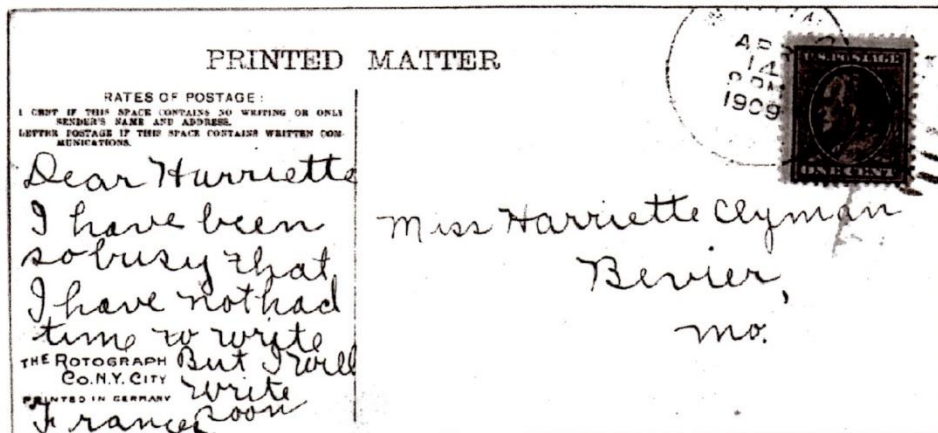 PRINTED MATTER
RATES OF POSTAGE:
1 CENT IF THIS SPACE CONTAINS NO WRITING OR ONLY
SENDER'S NAME AND ADDRESS.
LETTER POSTAGE IF THIS SPACE CONTAINS WRITTEN COM-
MUNICATIONS.
Dear Harriette
I have been
so busy that
I have not had
time to write
But I will
write
soon
Frances
THE ROTOGRAPH
CO. N.Y. CITY
PRINTED IN GERMANY
AP
14
PM
1909
U.S. POSTAGE
ONE CENT
Miss Harriette Clyman
Bevier,
Mo.